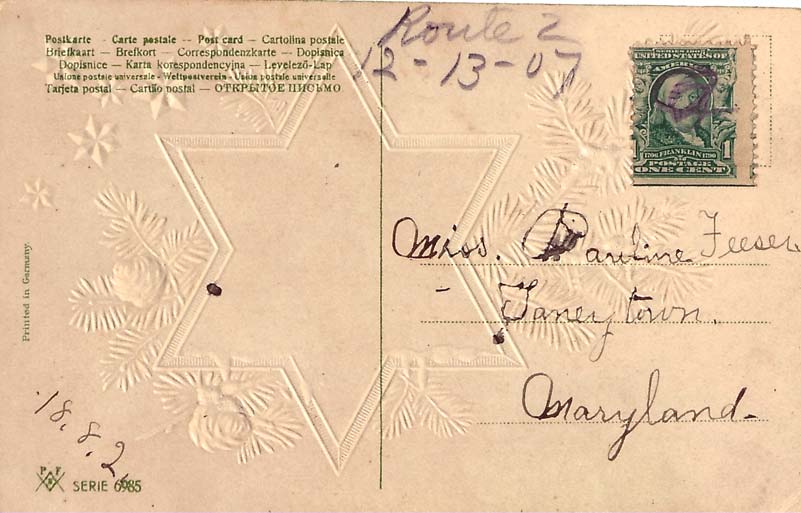 Postkarte - Carte postale - Post card - Cartolina postale
Briefkaart - Brefkort - Correspondenzkarte - Dopisnica
Dopisnice - Karta korespondencyjna - Levelező-Lap
Unione postale universale - Weltpostverein - Union postale universelle
Tarjeta postal - Cartão postal - ОТКРЫТОЕ ПИСЬМО
Route 2
12-13-07
SERIES 1902
UNITED STATES OF
AMERICA
1706 FRANKLIN 1790
1 POSTAGE 1
ONE CENT
Miss. Pauline Feeser
- Taneytown.
Maryland-
Printed in Germany.
18.8.2
P F
B
SERIE 6985